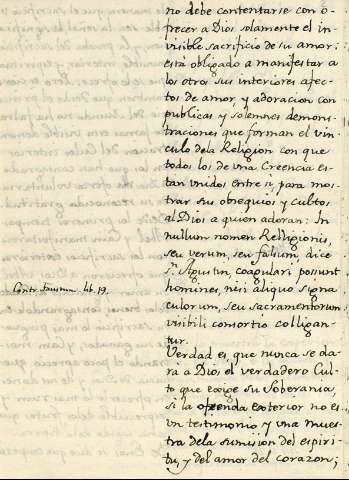 no debe contentarse con o-
frecer a Dios solamente el in-
visible sacrificio de su amor;
está obligado a manifestar a
los otros sus interiores afec-
tos de amor y adoracion con
publicas y solemnes demons-
traciones que forman el vin-
culo dela Religion con que
todos los de vna Creencia es-
tan vnidos entre si, para mos-
trar sus obsequios y cultos
al Dios a quien adoran: In
nullum nomen Religionis,
seu verum, seu falsum, dice
S. Agustin, coagulari possunt
homines, nisi aliquo signa-
culorum, seu sacramentorum
visibili consortio colligan-
tur.
Contr. Faustum. lib. 19.
Verdad es, que nunca se da-
ra a Dios el verdadero Cul-
to que exige su Soberania,
si la ofrenda exterior no es
vn testimonio y vna mues-
tra dela sumision del espiri-
tu, y del amor del corazon;